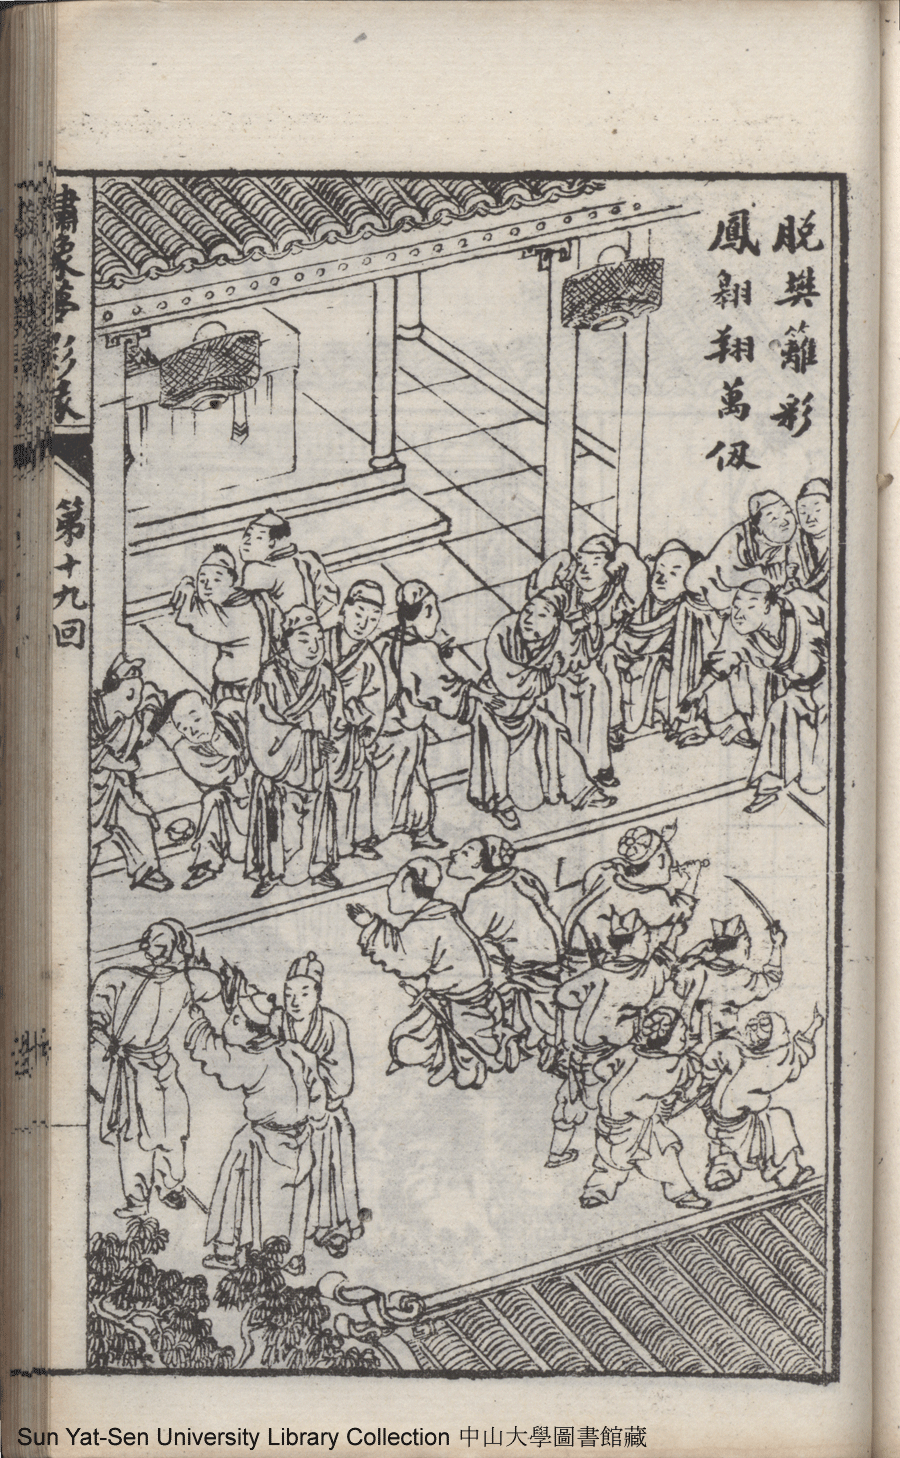 脫樊籬彩
鳳翱翔萬仞
繡像夢影緣
第十九回
Sun Yat-Sen University Library Collection 中山大學圖書館藏